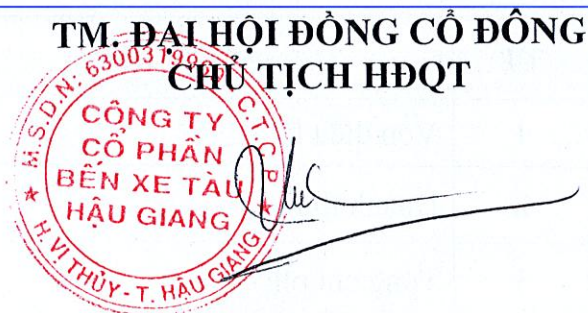 TM. ĐẠI HỘI ĐỒNG CỔ ĐÔNG
CHỦ TỊCH HĐQT
M.S.D.N: C.T.C.P
CÔNG TY
CỔ PHẦN
BẾN XE TÀU
HẬU GIANG
H. VỊ THỦY - T. HẬU GIANG